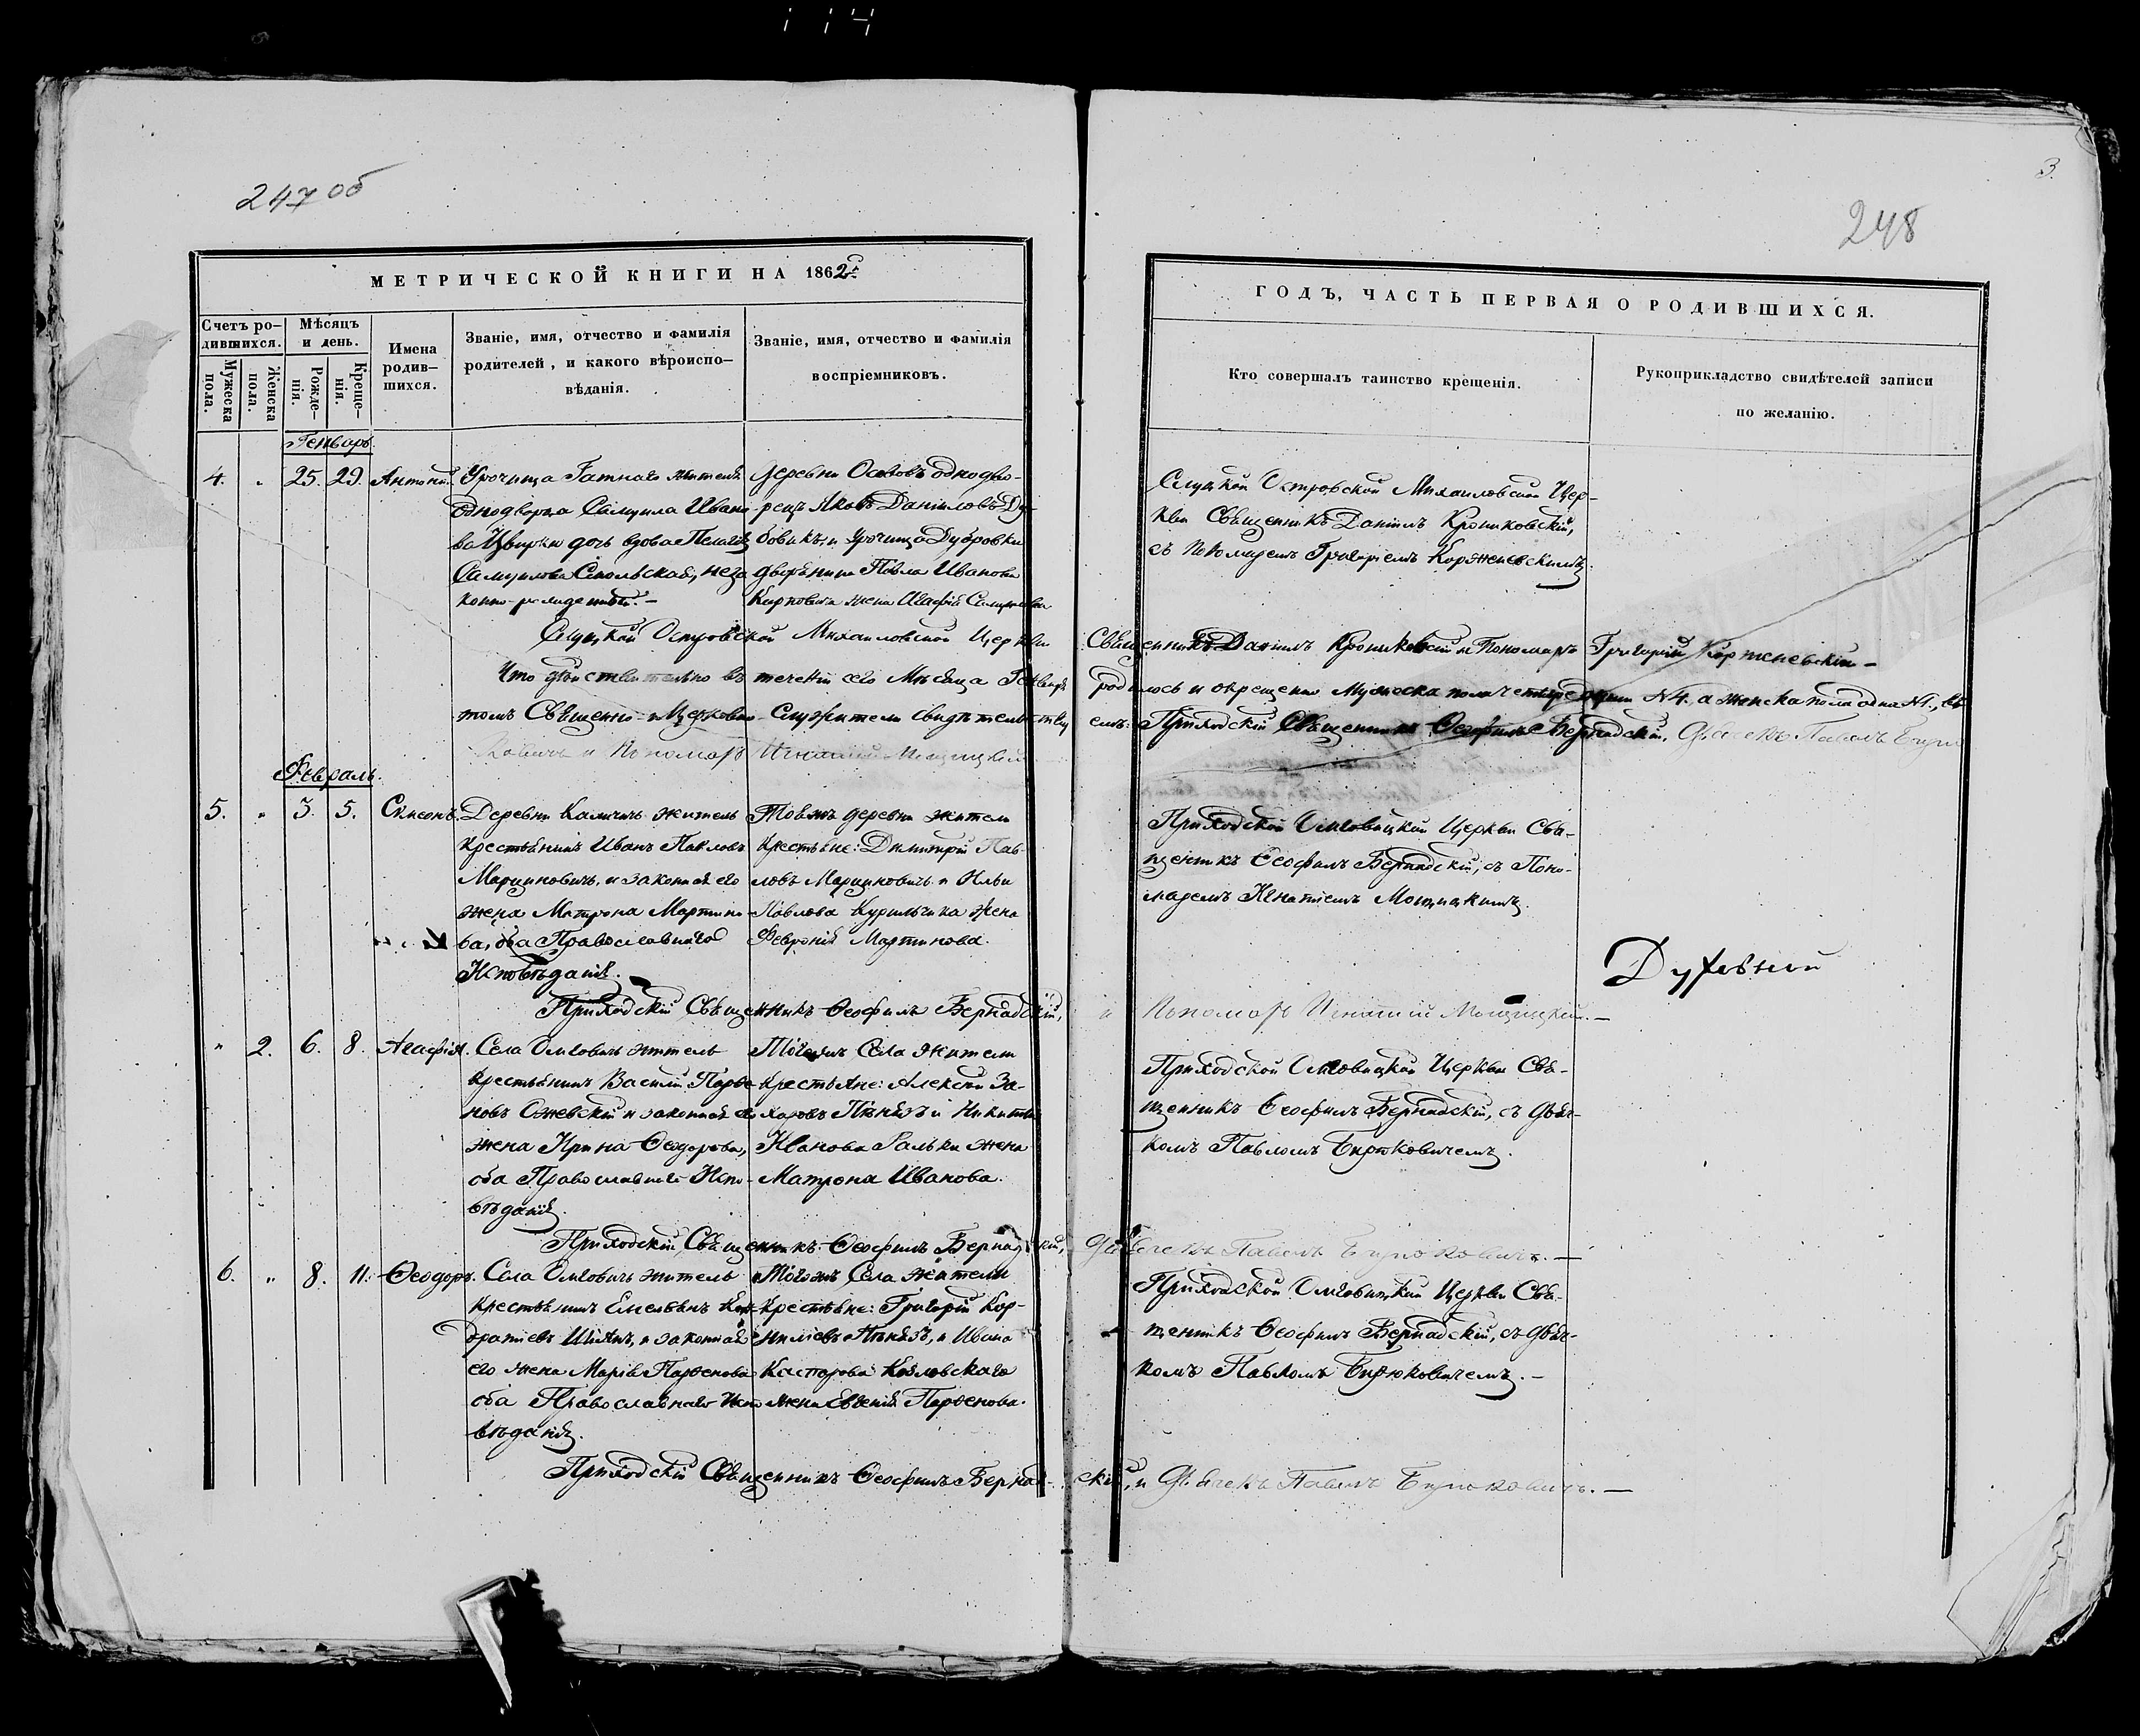 114
247 об
3.
248
МЕТРИЧЕСКОЙ КНИГИ НА 1862й
ГОДЪ, ЧАСТЬ ПЕРВАЯ О РОДИВШИХСЯ.
Счетъ ро-
дившихся.
Мужеска пола.
Женска пола.
Мѣсяцъ
и день.
Рожде-
нія.
Креще-
нія.
Имена
родив-
шихся.
Званіе, имя, отчество и фамилія
родителей, и какого вѣроиспо-
вѣданія.
Званіе, имя, отчество и фамилія
воспріемниковъ.
Кто совершалъ таинство крещенія.
Рукоприкладство свидѣтелей записи
по желанію.
Генварь.
4. „ 25. 29. Антоній.
Урочища Гатнаго житель
однодворца Самуила Ивано-
ва дочь вдова Пелагія
Самуилова незa
конно-
Деревни однодво-
рецъ Яковъ Даніиловъ Ду-
бовикъ, и Урочища Дубровки
дворянина Павла Иванова
жена Агафія Самуилова
Слуцкой Островской Михаиловской Цер-
кви Священникъ Даніилъ Крониковскій,
съ Пономаремъ Григоріемъ Корженевскимъ.
Слуцкой Островской Михаиловской Церкви Священникъ Даніилъ Крониковскій и Пономарь Григорій Корженевскій -
Что дѣйствительно въ теченіи сего Мѣсяца Генваря родилось и окрещено Мужеска пола четыре души N 4. а женска пола одна N 1., въ
томъ Священно-и Церковно-Служители свидѣтельствуемъ: Приходскій Священникъ Ѳеофилъ Бернадскій, Дьячекъ Павелъ Бирю
ковичъ и Пономарь Игнатій Мощицкій
Февраль.
5. „ 3. 5. Симеонъ.
Деревни житель
Крестьянинъ Иванъ Павловъ
Марциновичъ, и законная его
жена Матрона Мартино-
ва, оба Православнаго
Исповѣданія.
Тояжъ деревни жители
Крестьяне: Димитрій Пав-
ловъ Марциновичъ и Ильи
Павлова жена
Февронія Мартинова.
Приходской Церкви Свя-
щенникъ Ѳеофилъ Бернадскій, съ Поно-
маремъ Игнатіемъ Мощицкимъ.
Приходскій Священникъ Ѳеофилъ Бернадскій, и Пономарь Игнатій Мощицкій. -
„ 2. 6. 8. Агафія.
Села житель
Крестьянинъ Василій Парѳе-
новъ и законная его
жена Ирина Ѳеодорова,
оба Православнаго Испо-
вѣданія.
Тогожъ Села жители
Крестьяне: Алексѣй За-
харовъ и Никиты
Иванова жена
Матрона Иванова.
Приходской Церкви Свя-
щенникъ Ѳеофилъ Бернадскій, съ Дьяч-
комъ Павломъ Бирюковичемъ.
Приходскій Священникъ Ѳеофилъ Бернадскій, Дьячекъ Павелъ Бирюковичъ. -
6. „ 8. 11. Ѳеодоръ.
Села житель
Крестьянинъ Емельянъ Кон-
дратіевъ и законная
его жена Марія Парѳенова
оба Православнаго Испо
вѣданія.
Тогожъ Села жители
Крестьяне: Григорій Кор-
ниліевъ и Ивана
Касторова Козловскаго
жена Евгенія Парѳенова.
Приходской Церкви Свя-
щенникъ Ѳеофилъ Бернадскій, съ Дьяч-
комъ Павломъ Бирюковичемъ. -
Приходскій Священникъ Ѳеофилъ Бернадскій, и Дьячекъ Павелъ Бирюковичъ. -